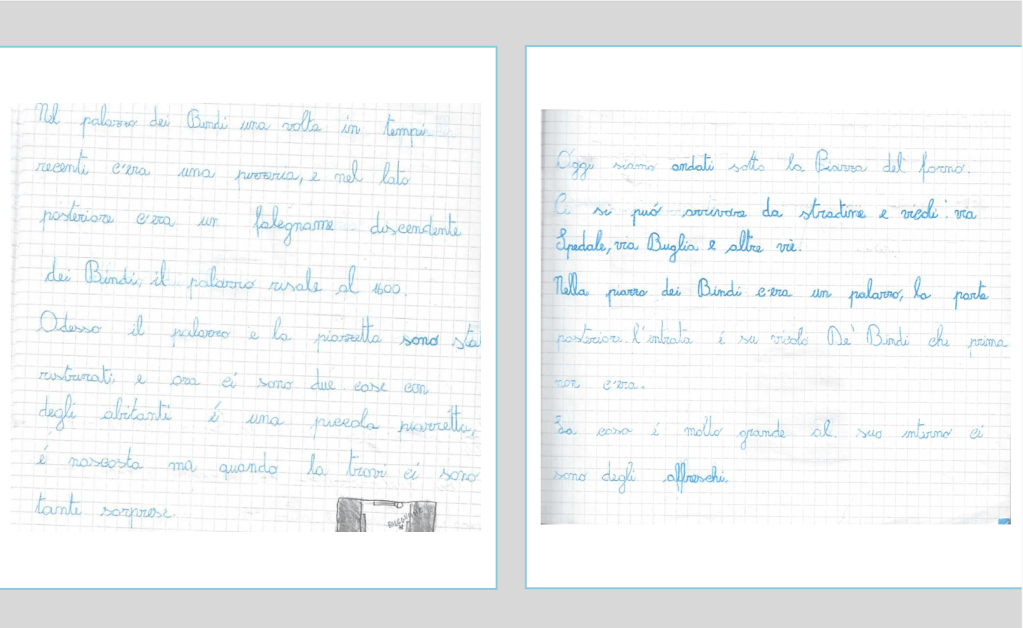 Nel palazzo dei Bindi una volta in tempi
recenti c'era una pizzeria, e nel lato
posteriore c'era un falegname discendente
dei Bindi, il palazzo risale al 1600.
Adesso il palazzo e la piazzetta sono sta
restaurati, e ora ci sono due case con
degli abitanti é una piccola piazzetta,
é nascosta ma quando la trovi ci sono
tante sorprese.
Oggi siamo andati sotto la Piazza del forno.
Ci si può arrivare da stradine e vicoli: via
Spedale, via Buglia e altre vie.
Nella piazza dei Bindi c'era un palazzo, la parte
posteriore l'intrata é su vicolo De' Bindi che prima
non c'era.
La casa é molto grande al suo interno ci
sono degli affreschi.